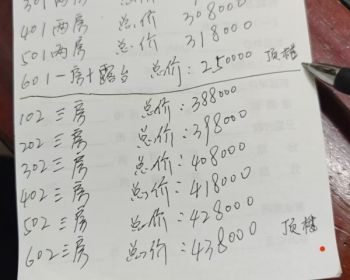 301两房 总价:308000
401两房 总价:308000
501两房 总价:318000
601一房+露台 总价:250000 顶楼
102三房 总价:388000
202三房 总价:398000
302三房 总价:408000
402三房 总价:418000
502三房 总价:428000
602三房 总价:438000 顶楼